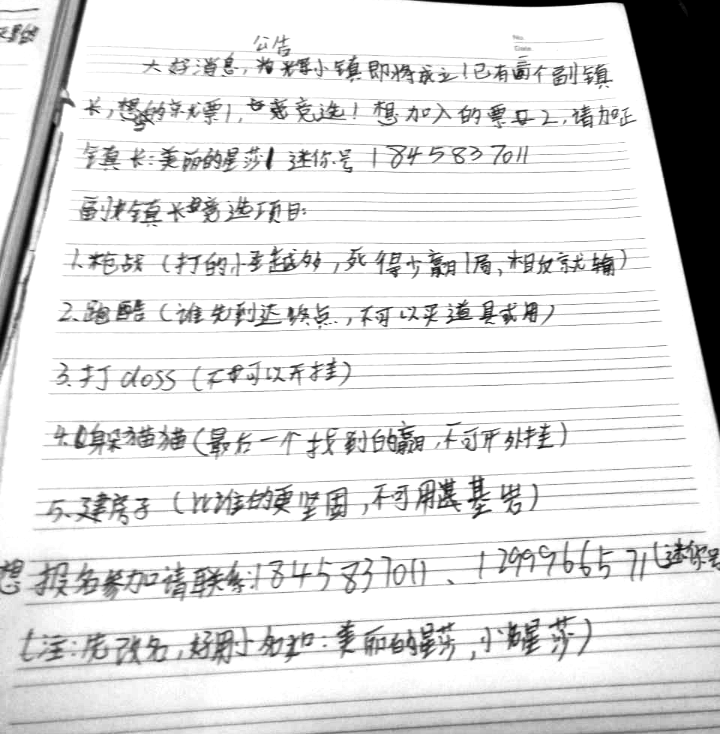 公告
大好消息,光辉小镇即将成立!已有两个副镇
长,想的就票1,竞选!想加入的票2,请加正
镇长:美丽的星莎 迷你号1845837011
副镇长竞选项目:
1.枪战(打的越多,死得少赢1局,相反就输)
2.跑酷(谁先到达终点,不可以买道具或用)
3.打doss(不可以开挂)
4.躲猫猫(最后一个找到的赢,不可开外挂)
5.建房子(比谁的更坚固,不可用基岩)
想报名参加请联系:1845837011、1299966571(迷你号
(注:先改名,好用小名如:美丽的星莎,小星莎)